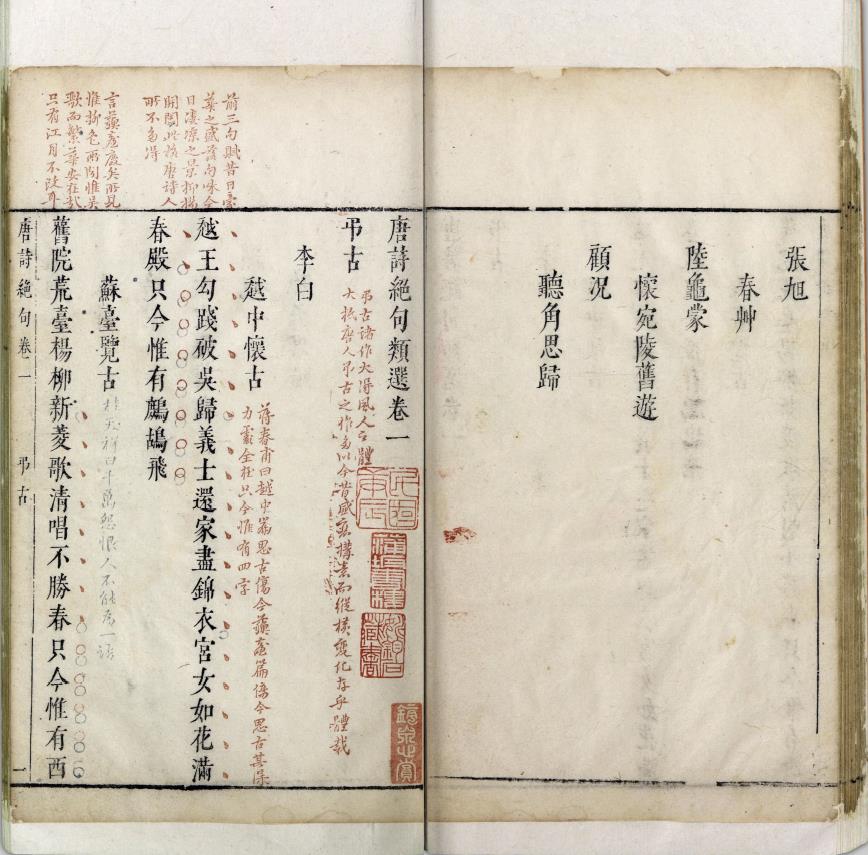 張旭
春艸
陸龜蒙
懷宛陵舊遊
顧況
聽角思歸
唐詩絕句類選卷一
弔古
弔古諸作大得風人之體
大抵唐人弔古之作多以今昔盛衰構意而縱橫變化存乎體裁
李白
越中懷古
蔣春甫曰越中篇思古傷今蘇臺篇傷今思古其
力霸全在只今惟有四字
越王勾踐破吳歸義士還家盡錦衣宮女如花滿
春殿只今惟有鷓鴣飛
前三句賦昔日豪
華之盛落句咏今
日凄凉之景
開闔此換唐詩人
所不多得
蘇臺覽古
桂天祥曰千萬怨恨人不能為一語
舊院荒臺楊柳新菱歌清唱不勝春只今惟有西
言蘇臺廢矣所見
惟柳色所聞惟吳
歌而繁華安在哉
只有江月不改耳
唐詩絕句卷一
弔古
一